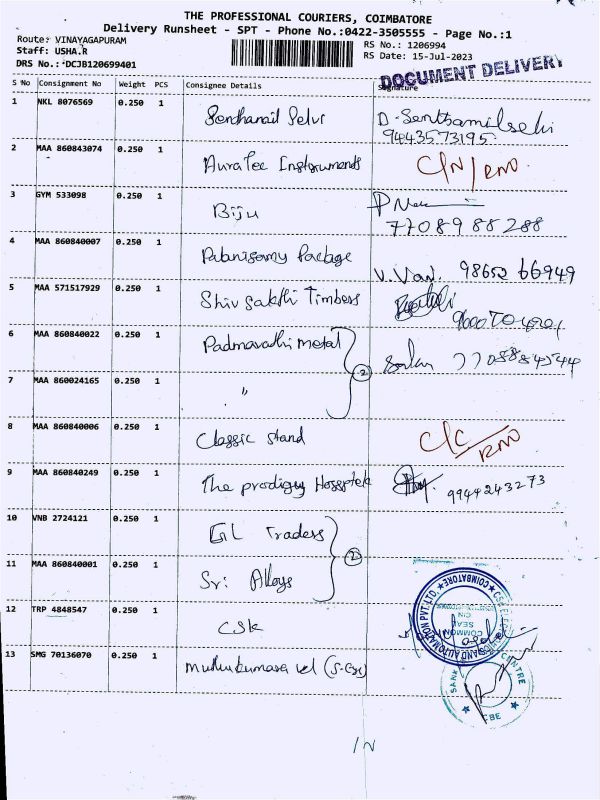 THE PROFESSIONAL COURIERS, COIMBATORE
Delivery Runsheet - SPT - Phone No.:0422-3505555 - Page No.:1
Route: VINAYAGAPURAM
Staff: USHA.R
DRS No.: DCJB120699401
RS No.: 1206994
RS Date: 15-Jul-2023
DOCUMENT DELIVERY
S No Consignment No Weight PCS Consignee Details Signature
1 NKL 8076569 0.250 1 Senthamil Selvi D. Senthamilselvi
9443573195
2 MAA 860843074 0.250 1 Auratec Instruments C/N/RNO
3 GYM 533098 0.250 1 Biju
7708988288
4 MAA 860840007 0.250 1 Palanisamy Package 98652 66949
5 MAA 571517929 0.250 1 Shiv Sakthi Timbers
6 MAA 860840022 0.250 1 Padmavathi metal
7 MAA 860024165 0.250 1 " 2
8 MAA 860840006 0.250 1 Classic stand C/C RNO
9 MAA 860840249 0.250 1 The prodigy 9944243273
10 VNB 2724121 0.250 1 Traders
11 MAA 860840001 0.250 1 Sri Alloys 2
12 TRP 4848547 0.250 1 CSK
13 SMG 70136070 0.250 1 Muthukumara vel
AND AUTOMATION PVT. LTD. COIMBATORE
COMMON SEAL
CENTRE
CBE